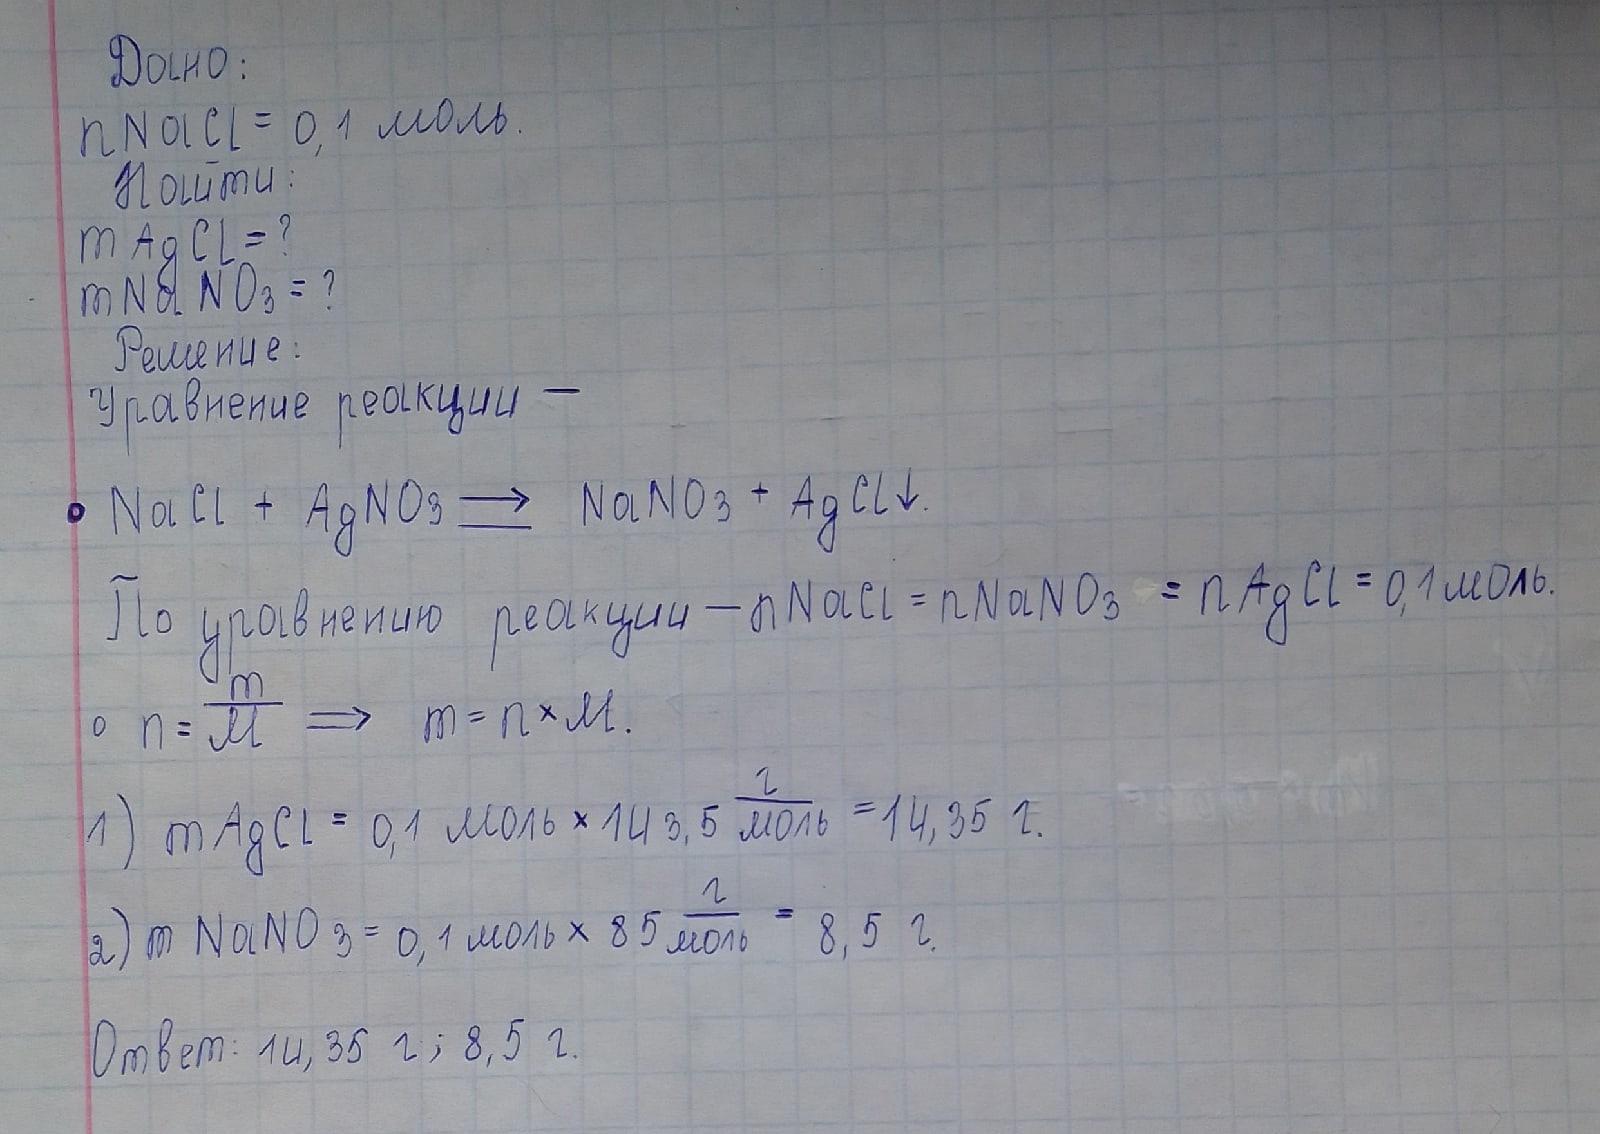 Дано:
nNaCl = 0,1 моль.
Найти:
mAgCl = ?
mNaNO3 = ?
Решение:
Уравнение реакции —
NaCl + AgNO3 ⟶ NaNO3 + AgCl↓.
По уравнению реакции — nNaCl = nNaNO3 = nAgCl = 0,1 моль.
n = m/M ⟹ m = n × M.
1) mAgCl = 0,1 моль × 143,5 г/моль = 14,35 г.
2) mNaNO3 = 0,1 моль × 85 г/моль = 8,5 г.
Ответ: 14,35 г; 8,5 г.